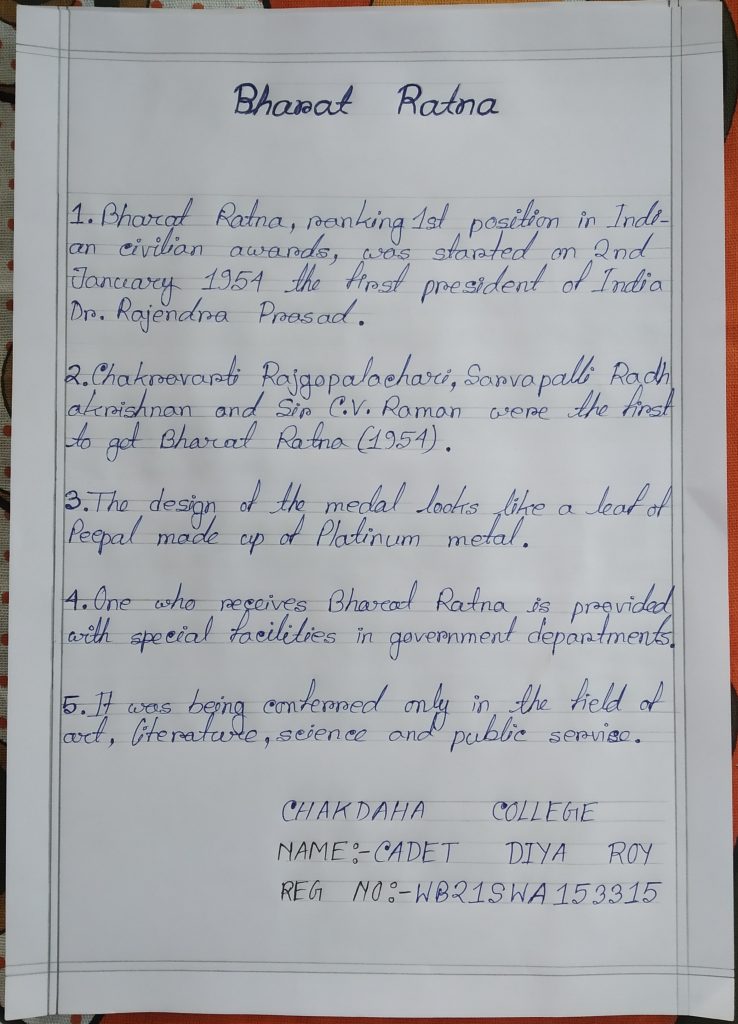 Bharat Ratna
1. Bharat Ratna, ranking 1st position in Indi-
an civilian awards, was started on 2nd
January 1954 the first president of India
Dr. Rajendra Prasad.
2. Chakravarti Rajgopalachari, Sarvapalli Radh
akrishnan and Sir C.V. Raman were the first
to get Bharat Ratna (1954).
3. The design of the medal looks like a leaf of
Peepal made up of Platinum metal.
4. One who receives Bharat Ratna is provided
with special facilities in government departments.
5. It was being conferred only in the field of
art, literature, science and public service.
CHAKDAHA COLLEGE
NAME:- CADET DIYA ROY
REG NO:- WB21SWA153315